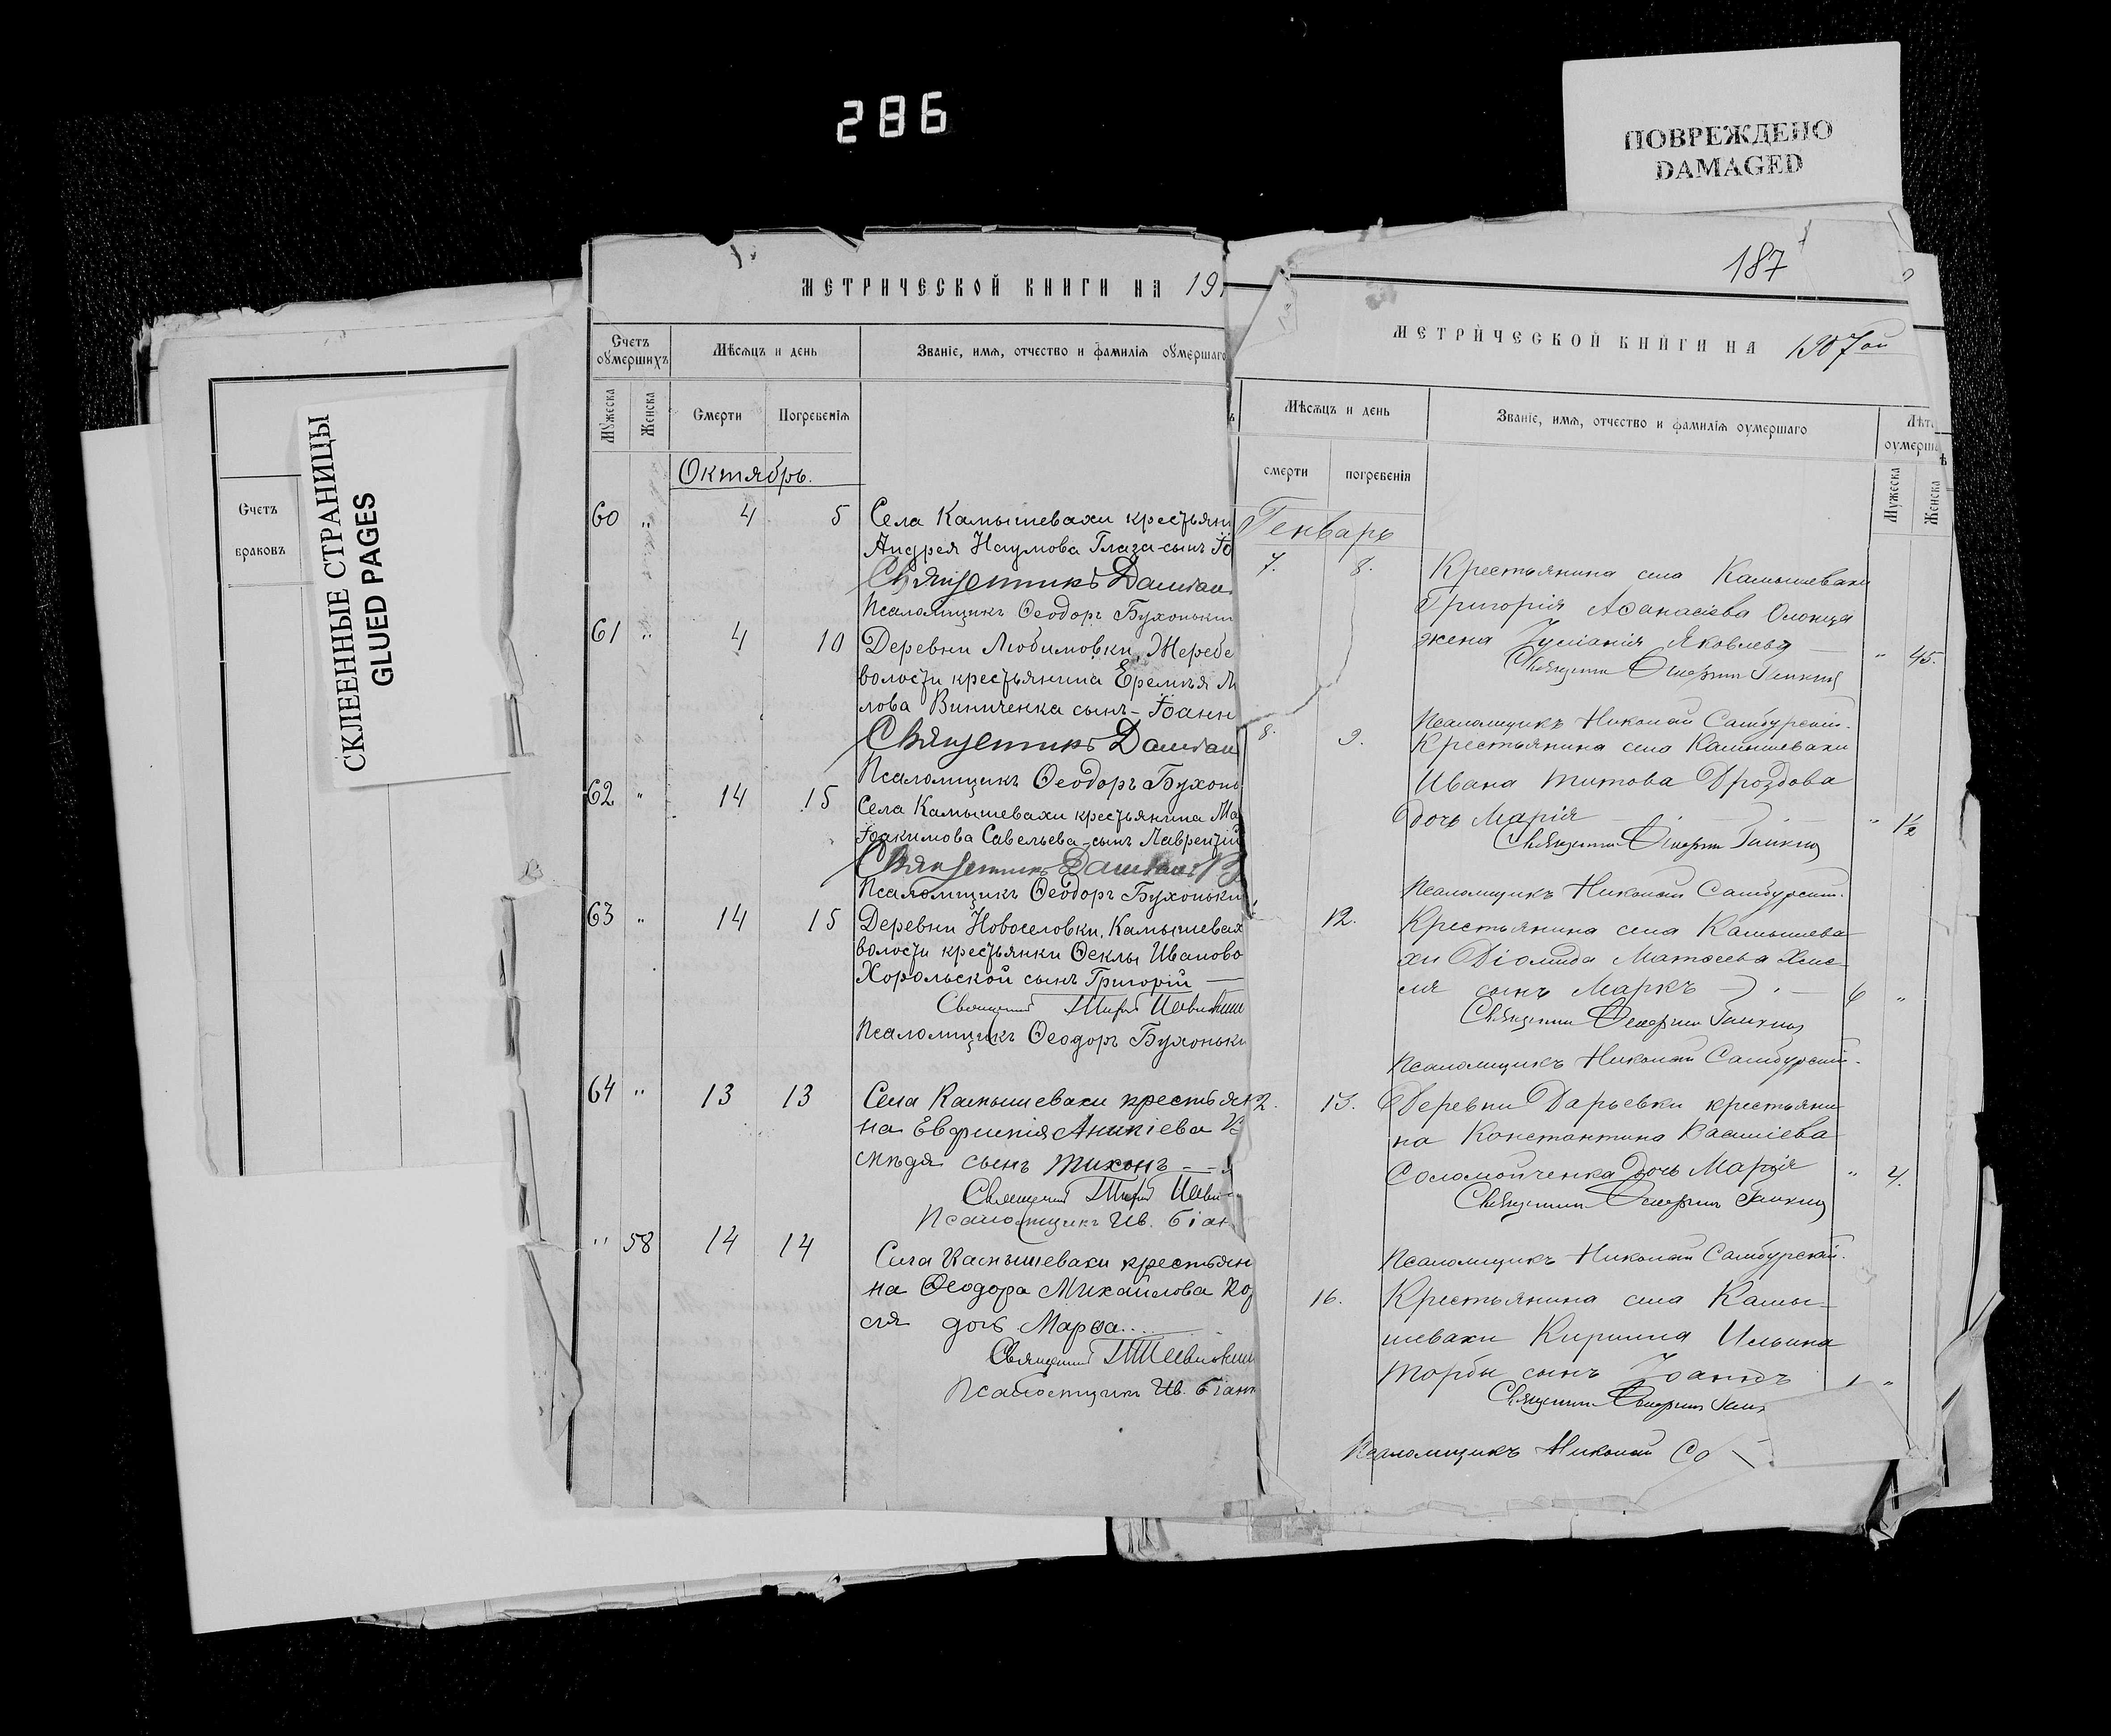 286
ПОВРЕЖДЕНО
DAMAGED
СКЛЕЕННЫЕ СТРАНИЦЫ
GLUED PAGES
Счетъ
браковъ
МЕТРИЧЕСКОЙ КНИГИ НА 19
Счетъ оумершихъ
Мѣсяцъ и день
Званіе, имя, отчество и фамилія оумершаго
Мужеска
Женска
Смерти
Погребенія
Октябрь.
60 " 4 5 Села Камышевахи крестьян
Андрея Наумова Глаза-сынъ Іо
Священникъ Даміан
Псаломщикъ Ѳеодоръ Бухоньки
61 " 4 10 Деревни Любимовки, Жеребе
волости крестьянина Еремѣя М
лова Виниченка сынъ-Іоанн
Священникъ Даміан
Псаломщикъ Ѳеодоръ Бухоно
62 " 14 15
Села Камышевахи крестьянина Ма
Іоакимова Савельева-сынъ Лаврентій
Священникъ Даміан
Псаломщикъ Ѳеодоръ Бухоньки
63 " 14 15 Деревни Новоселовки, Камышевах
волости крестьянки Ѳеклы Иваново
Хорольской сынъ Григорій —
Священникъ
Псаломщикъ Ѳеодоръ Бухоньки
64 " 13 13 Села Камышевахи крестьян
на Евфимія Аникіева
смѣдя сынъ Тихонъ
Священникъ
Псаломщикъ Ив. Біан
" 58 14 14
Села Камышевахи крестьян
на Ѳеодора Михаилова Ко
ля дочь Марѳа....
Священникъ
Псаломщикъ Ив. Біан
187
МЕТРИЧЕСКОЙ КНИГИ НА 1907 ой
Мѣсяцъ и день
Званіе, имя, отчество и фамилія оумершаго
Лѣт
оумерша
смерти
погребенія
Мужеска
Женска
Генварь
7. 8. Крестьянина села Камышевахи
Григорія Аѳанасіева
жена Іуліанія Яковлева " 45.
Священникъ
Псаломщикъ Николай Самбурскій.
8. 9. Крестьянина села Камышевахи
Ивана Титова Дроздова
дочь Марія " 1/2
Священникъ
Псаломщикъ Николай Самбурскій.
12. Крестьянина села Камышева
хи Діомида Матѳеева Хме-
ля сынъ Маркъ 6 "
Священникъ
Псаломщикъ Николай Самбурскій.
2. 13. Деревни Дарьевки крестьяни
на Константина Василіева
Соломонченка дочь Марія " 4.
Священникъ
Псаломщикъ Николай Самбурскій.
16. Крестьянина села Камы-
шевахи Кирилла Ильина
Торбы сынъ Іоаннъ 1 "
Священникъ
Псаломщикъ Николай Са